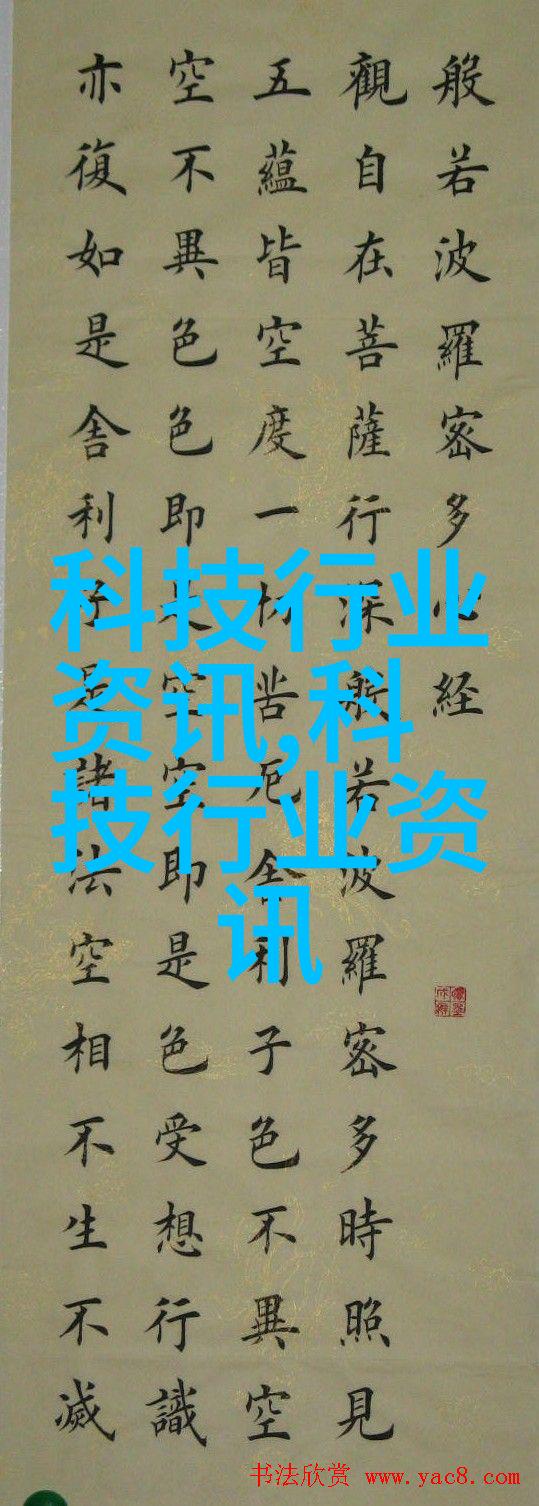 般若波羅密多心経
觀自在菩薩行深般若波羅密多時照見
五蘊皆空度一切苦厄舍利子色不異空
空不異色色即是空空即是色受想行識
亦復如是舍利子是諸法空相不生不滅
科技行业
资讯,科
技行业资
讯
书法欣赏 www.yac8.com